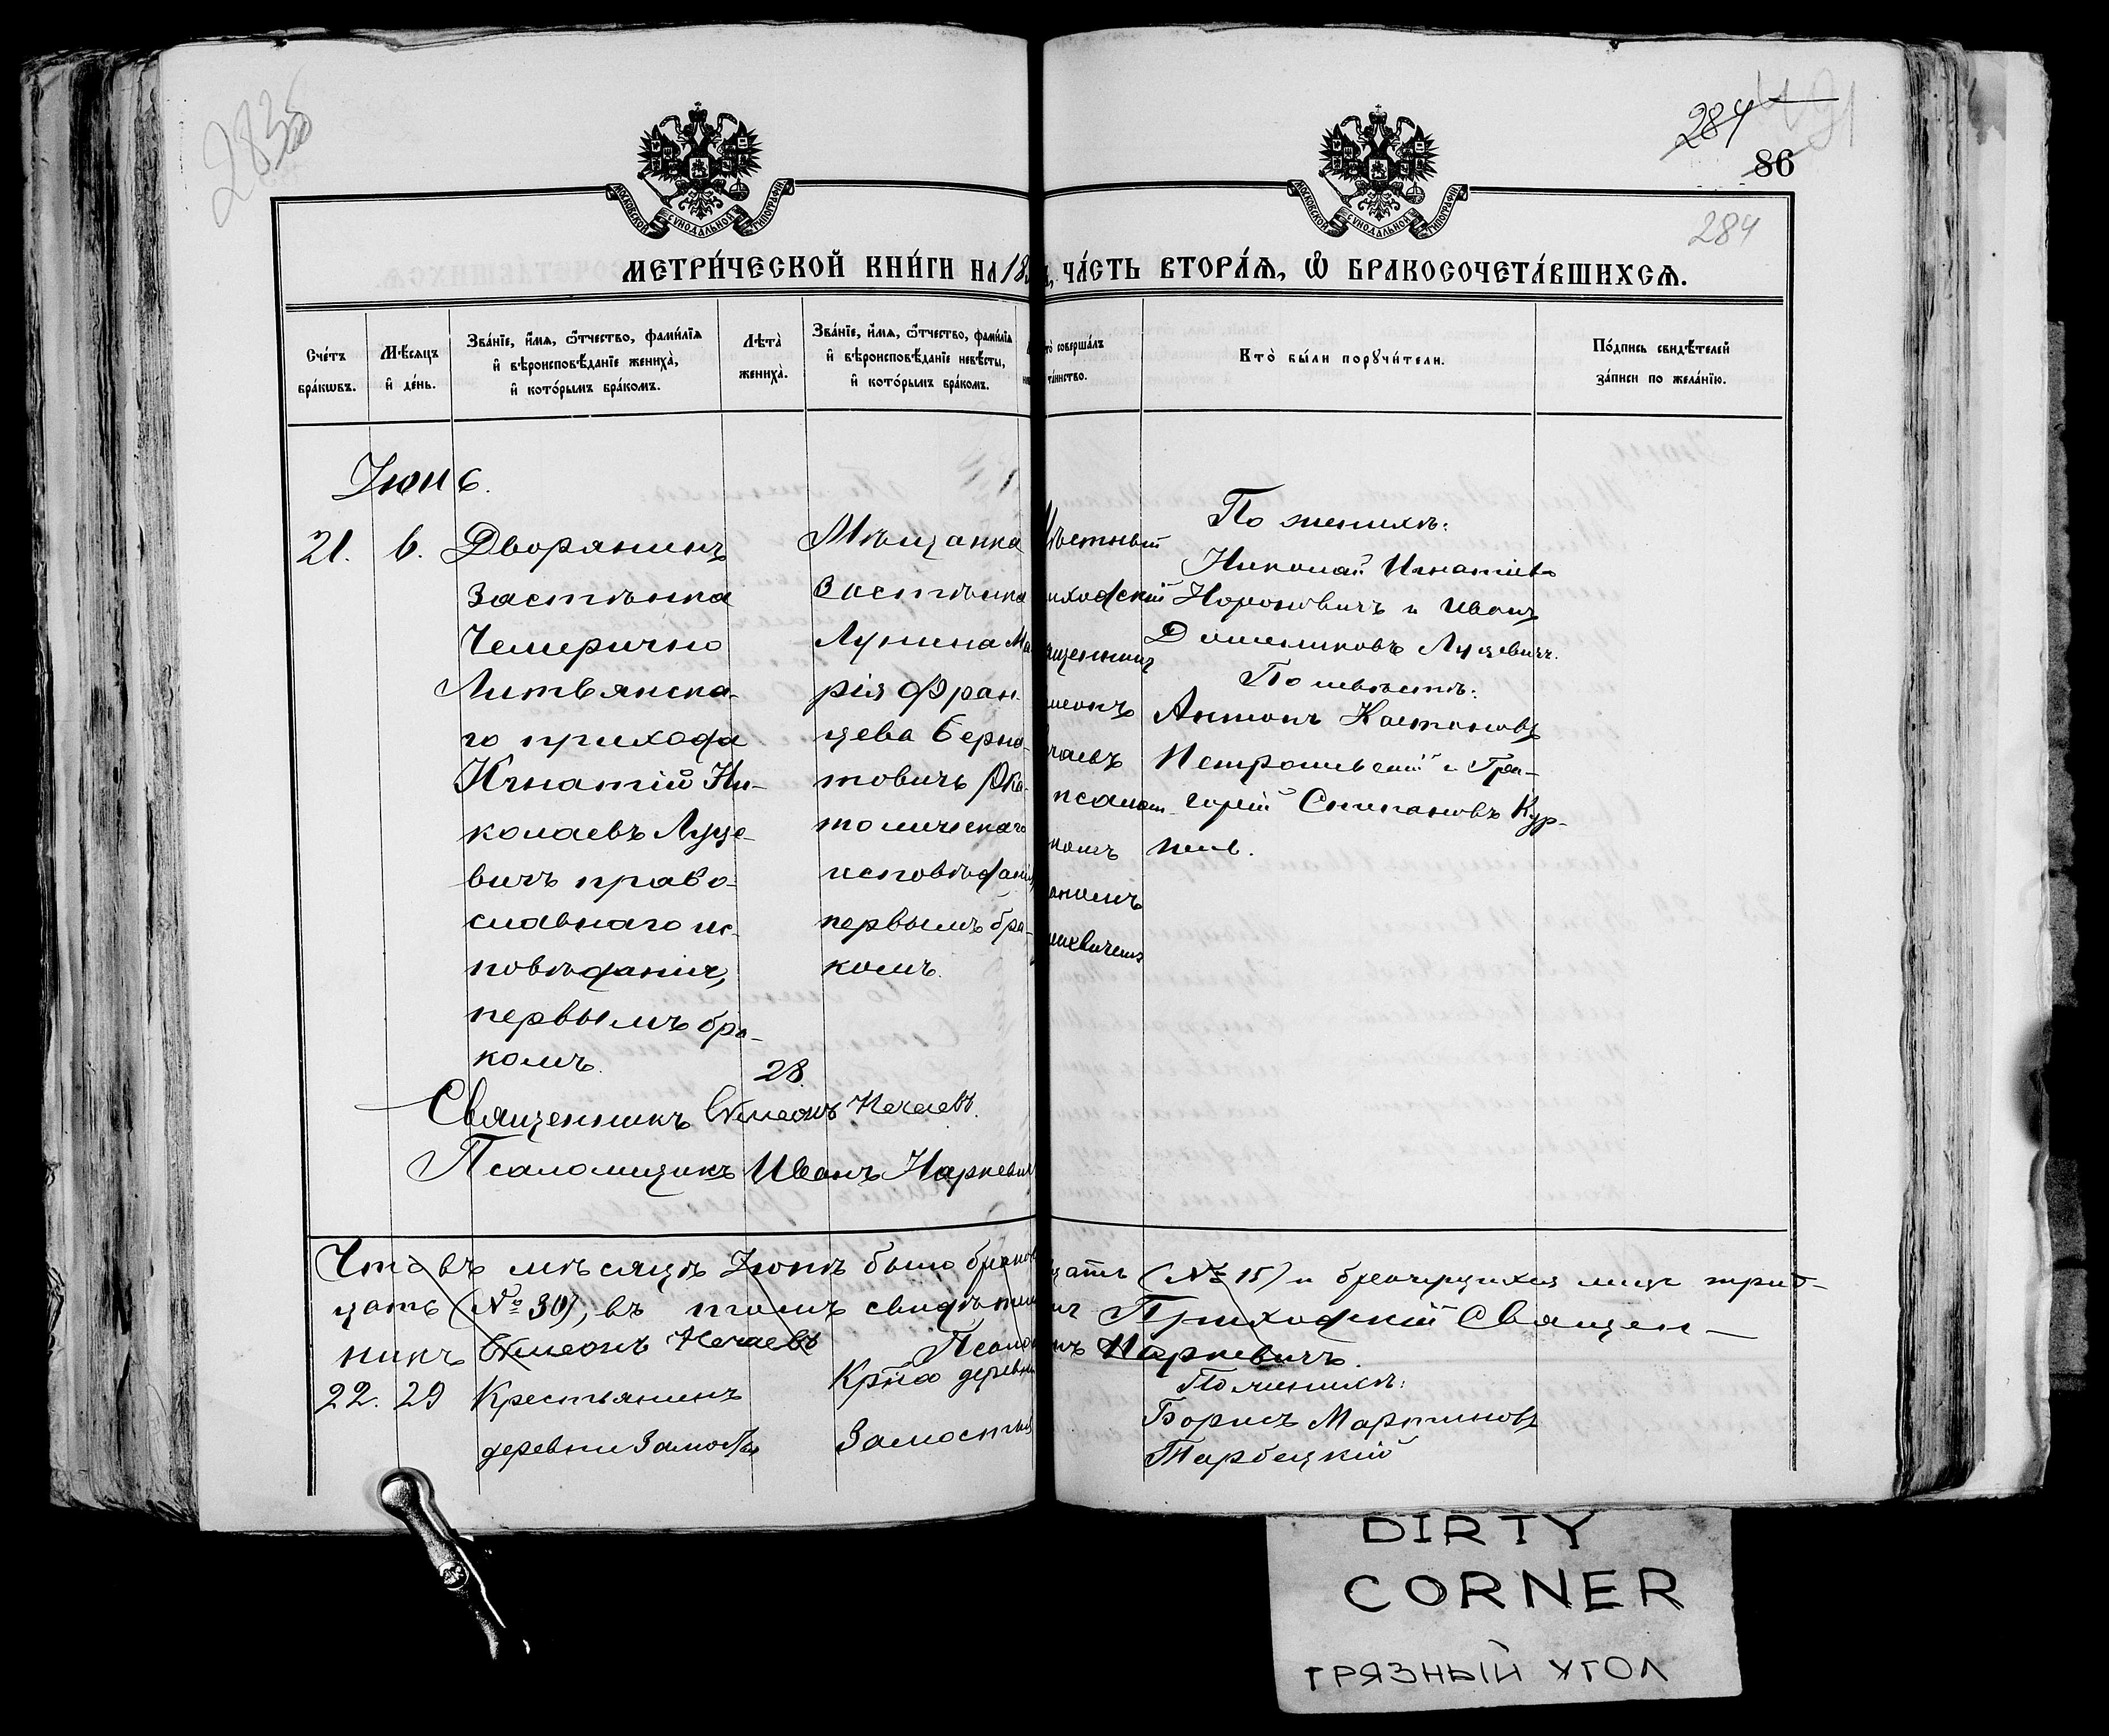 2835
284
86
284
МОСКОВСКОЙ СУНОДАЛЬНОЙ ТИПОГРАФІИ
МОСКОВСКОЙ СУНОДАЛЬНОЙ ТИПОГРАФІИ
МЕТРИ́ЧЕСКОЙ КНИ́ГИ НА 18
ЧА́СТЬ ВТОРА́Я, Ѡ БРАКОСОЧЕТА́ВШИХСЯ.
Сче́тъ
бра́кѡвъ.
Мѣ́сяцъ
и҆ де́нь.
Зва́нїе, и҆́мя, ѻ҆́тчество, фами́лїя
и҆ вѣроисповѣ́данїе жениха̀,
и҆ кото́рымъ бра́комъ.
Лѣта̀
жениха̀.
Зва́нїе, и҆́мя, ѻ҆́тчество, фами́лїя
и҆ вѣроисповѣ́данїе невѣ́сты,
и҆ кото́рымъ бра́комъ.
то̀ соверша́лъ
та́инство.
Кто̀ бы́ли поручи́тели.
По́дпись свидѣ́телей
за́писи по жела́нїю.
Іюнь.
21.
6.
Дворянинъ
застѣнка
Чемерично
Литвянска-
го прихода
Игнатій Ни-
колаевъ Луце-
вичъ право-
славнаго ис-
повѣданія,
первымъ бра-
комъ.
28.
Мѣщанка
застѣнка
Лунина Ма
рія Фран-
цева Берна-
товичъ Рка-
толическаго
исповѣданія
первымъ бра-
комъ.
ѣстный
иходскій
ященникъ
меонъ
чаевъ
псалом-
комъ
аномъ
ркевичемъ
По женихѣ:
Николай Игнатіевъ
Нороновичъ и Иванъ
Доминиковъ Луцевичъ.
По невѣстѣ:
Антонъ Костановъ
Петрашевскій и Гри-
горій Степановъ Кур-
Священникъ Симеонъ Нечаевъ.
Псаломщикъ Иванъ Наркевич
Что въ мѣсяцѣ Іюнѣ было браков
цать (№ 15) и брачущихся лицъ трид-
цать (№ 30), въ томъ свидѣтел
Приходскій Священ-
никъ Симеонъ Нечаевъ
Псалом
Наркевичъ.
22.
29
Крестьянинъ
деревни Замостья
Крн҃ка деревни
Замостья
По женихѣ:
Борисъ Мартиновъ
Тарбецкій
DIRTY
CORNER
ГРЯЗНЫЙ УГОЛ